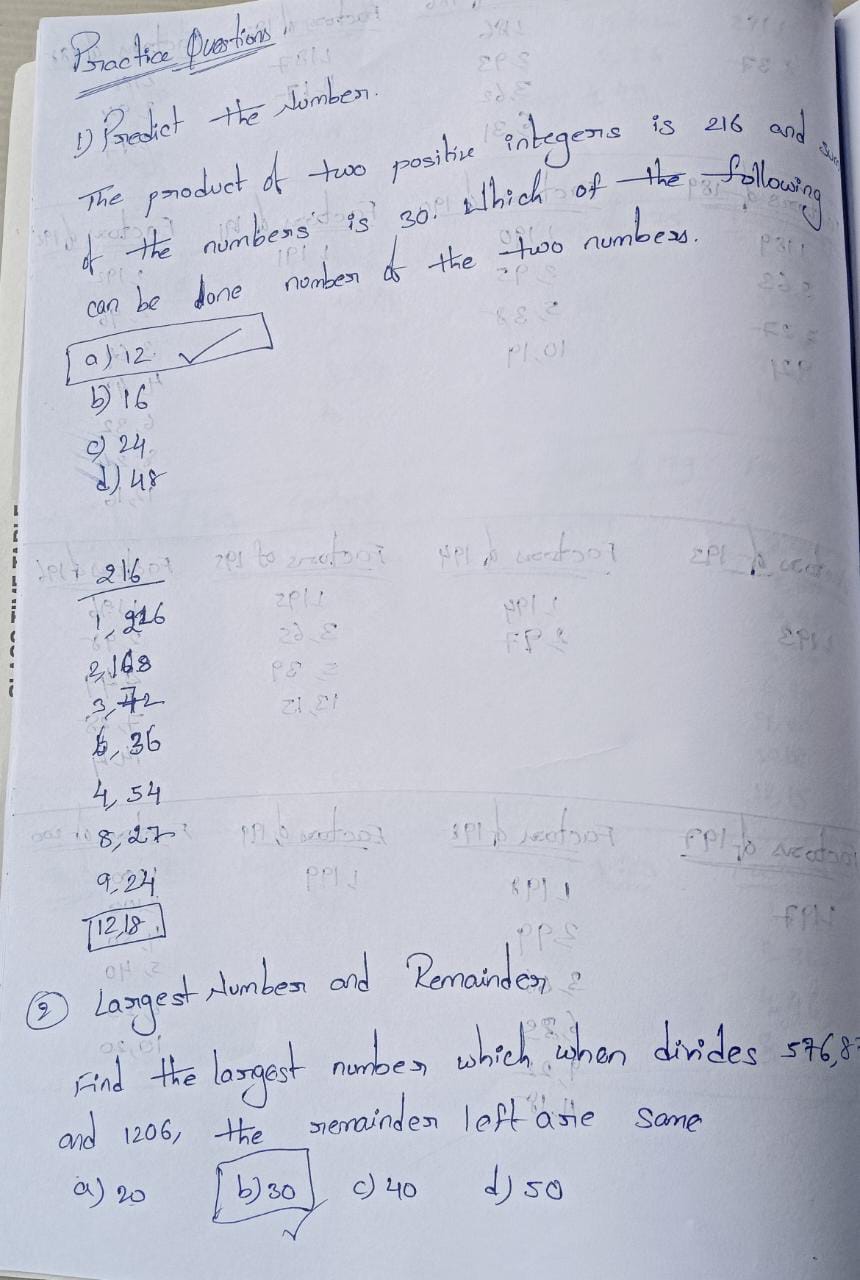 Practice Questions
1) Predict the Number.
The product of two positive integers is 216 and
of the numbers is 30. Which of the following
can be done number of the two numbers.
a) 12
b) 16
c) 24
d) 48
216
1, 216
2, 108
3, 72
6, 36
4, 54
8, 27
9, 24
12, 18
2 Largest Number and Remainder
Find the largest number which when divides 576,
and 1206, the remainder left are same
a) 20 b) 30 c) 40 d) 50